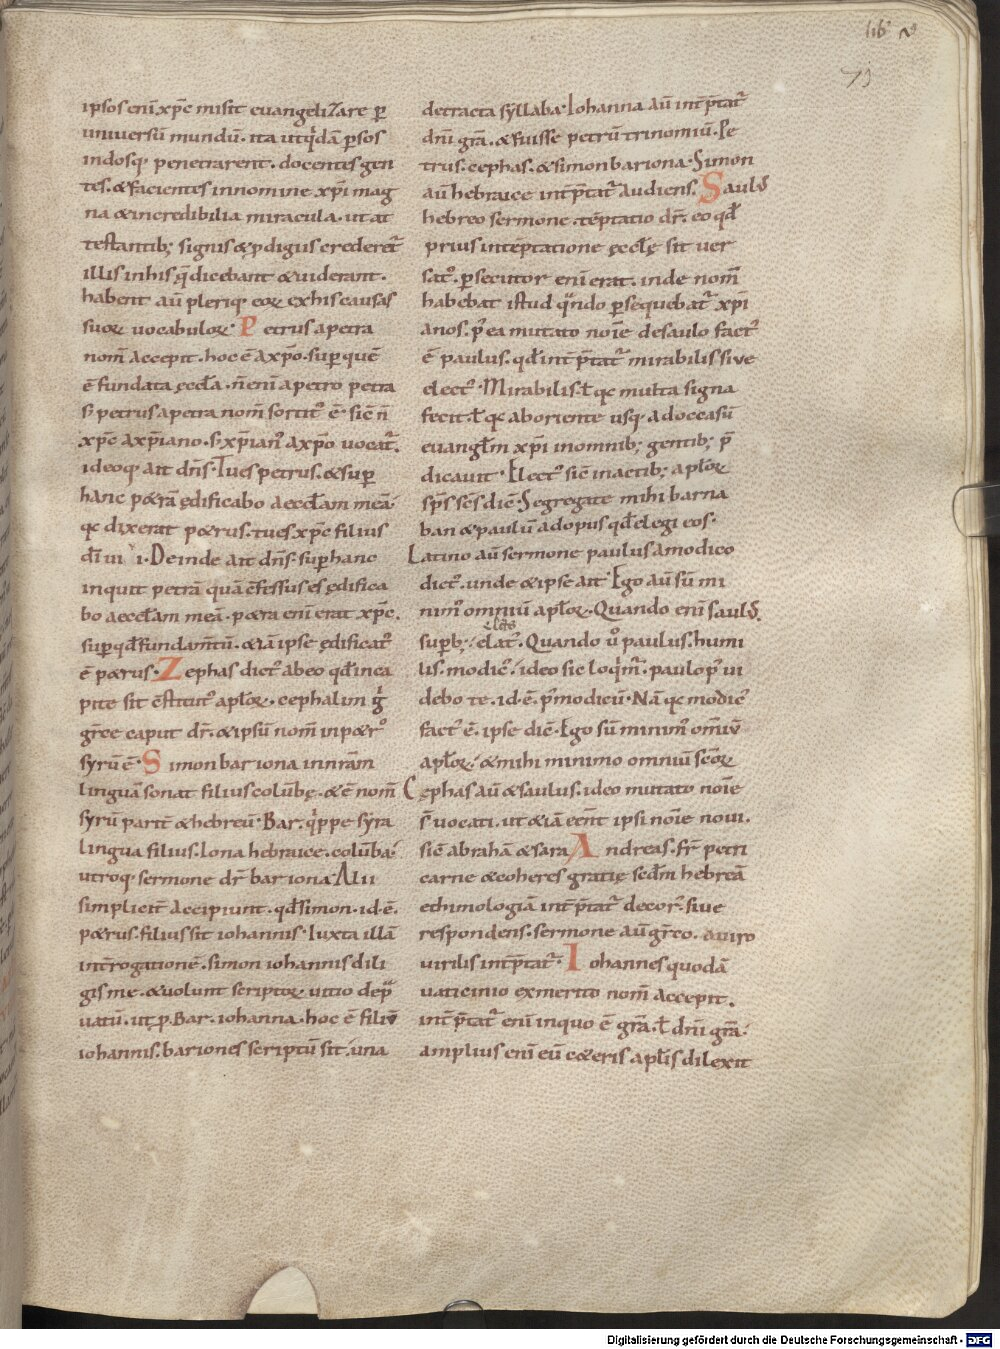 ipsos eni xp̄c misit euangelizare p̱
uniuersū mundū. ita ut q̇dā p̱sos
indosq; penetrarent. docentes gen
tes. & facientes in nomine xp̄i mag
na & incredibilia miracula. ut at
testantib; signis & ꝓdigiis crederet᷑
illis in his q̨ dicebant & uiderant.
habent aū pleriq; eoꝝ ex his causas
suoꝝ uocabuloꝝ. Petrus a petra
nom̄ accepit. hoc ē a xp̄o. sup̱ quē
ē fundata ęccl̄a. n̄ enī a petro petra
s; petrus a petra nom̄ sortit᷒ ē. sic n̄
xp̄c a xp̄iano. s; xp̄ian᷒ a xp̄o uocat᷑.
ideoq; ait dn̄s. Tu es petrus. & sup̱
hanc p&rā ędificabo aeccl̄am meā.
qc dixerat p&rus. tu es xp̄c filius
dī ui i. Deinde ait dn̄s. sup̱ hanc
inquit petrā quā c̄fessus es ędifica
bo aeccl̄am meā. p&ra eni erat xp̄c.
sup̱ qđ fundam̄tū. &iā ipse ędificat᷒
ē p&rus. Zephas dict᷒ ab eo qđ in ca
pite sit c̄stitut᷒ apl̄oꝝ. cephalim ġ
grēce caput dr̄. & ipsū nom̄ in p&r᷒
syrū ē. Simon bar iona in nr̄am
linguā sonat filius colūbę. & ē nom̄
syrū parit̄ & hebreū. Bar. q̇ppe syra
lingua filius. Iona hebraice. colūba.
utroq; sermone dr̄ bar iona. Alii
simplicit̄ accipiunt. qđ simon. id ē.
p&rus. filius sit iohannis. Iuxta illā
int̄rogationē. simon iohannis dili
gis me. & uolunt scriptoꝝ uitio dep̄
uatū. ut p. Bar. iohanna. hoc ē filiū
iohannis. bariones scriptū sit. una
detracta syllaba. Iohanna aū int̄p̄tat᷑
dn̄i grā. & fuisse petrū trinomiū. Pe
trus. cephas. & simon bariona. Simon
aū hebraice int̄p̄tat᷑ audiens. Saul᷒
hebreo sermone. tēptatio dr̄. eo qđ
prius in tēptatione ęccl̄ę sit uer
sat᷒. p̱secutor eni erat. inde nom̄
habebat istud q̄ndo p̱sequebat᷑ xp̄i
anos. p̄ ea mutato noīe de saulo fact᷒
ē paulus. qđ int̄p̄tat᷑ mirabilis siue
elect᷒. Mirabilis. ł qc multa signa
fecit. ł qc ab oriente usq; ad occasū
euangl̄m xp̄i in omnib; gentib; p̄
dicauit. Elect᷒ sic in actib; apl̄oꝝ
sp̄s sc̄s dic̄. Segregate mihi barna
ban & paulū ad opus qđ elegi eos.
Latino aū sermone paulus a modico
dict᷒. unde & ipse ait. Ego aū sū mi
nim᷒ omniū apl̄oꝝ. Quando eni saul᷒.
sup̱b; elat᷒. Quando ů paulus. humi
lis. modic᷒. ideo sic loq̇m᷑. paulo p᷒ ui
debo te. id ē. p᷒ modicū. Nā qc modic᷒
fact᷒ ē. ipse dic̄. Ego sū minim᷒ om̄iū
apl̄oꝝ. & mihi minimo omniū sc̄oꝝ
Cephas aū & saulus. ideo mutato noīe
s̄ uocati. ut &iā eēnt ipsi noīe noui.
sic abrahā & sara. Andreas. fr̄ petri
carne & coheres gratię. sedm hebreā
ethimologiā int̄p̄tat᷑ decor᷒. siue
respondens. sermone aū grēco. a uiro
uirilis int̄p̄tat᷑. Iohannes quodā
uaticinio ex merito nom̄ accepit.
int̄p̄tat᷑ eni in quo ē grā. ł dn̄i grā.
amplius eni eū c&eris apl̄is dilexit
Digitalisierung gefördert durch die Deutsche Forschungsgemeinschaft - DFG